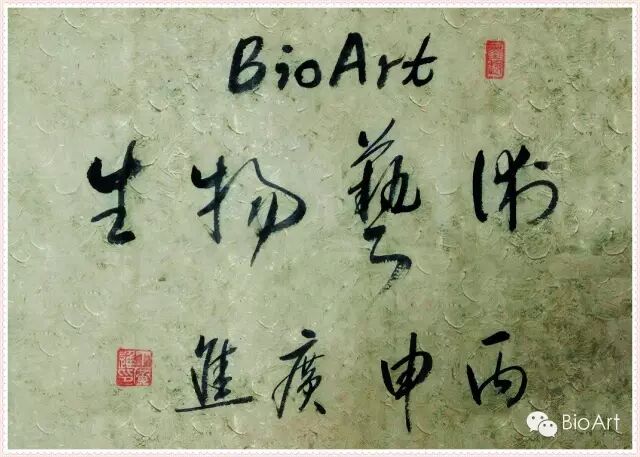 BioArt
生物藝術
丙申廣進
BioArt